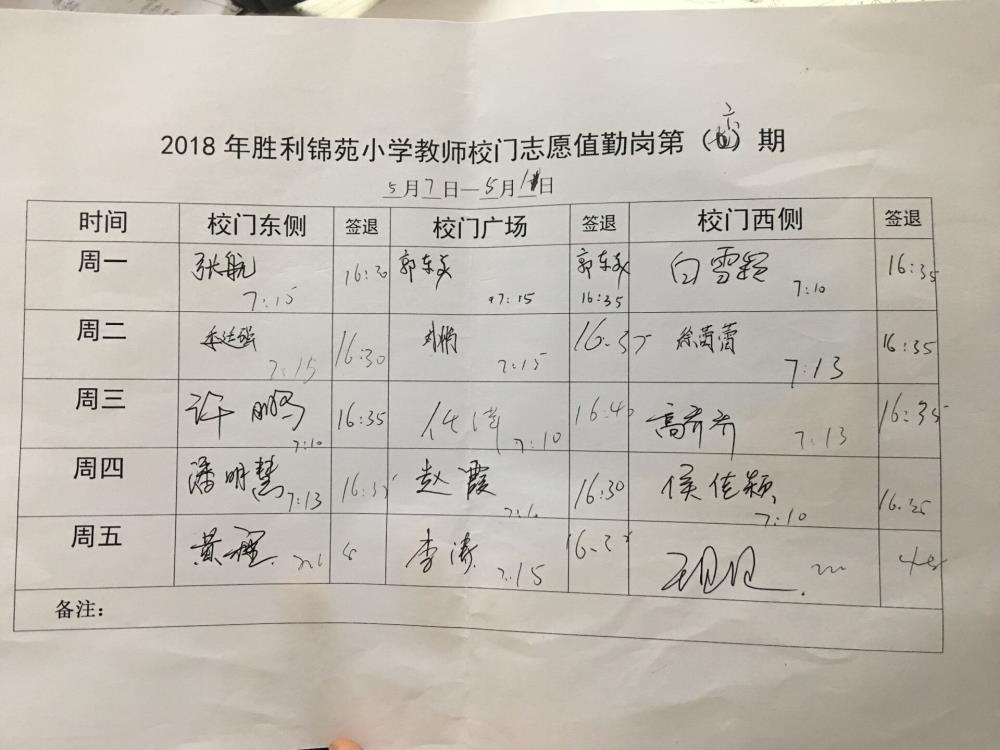 2018年胜利锦苑小学教师校门志愿值勤岗第（六）期
5月7日—5月11日
时间 校门东侧 签退 校门广场 签退 校门西侧 签退
周一 张航 7:15 16:30 郭东 7:15 郭东 16:35 白雪 7:10 16:35
周二 7:15 16:30 7:15 16:35 徐蕾蕾 7:13 16:35
周三 许鹏 7:10 16:35 任洁 7:10 16:40 高乔乔 7:13 16:35
周四 潘明慧 7:13 16:35 赵霞 16:30 侯佳颖 7:10 16:35
周五 黄 李涛 7:15
备注：